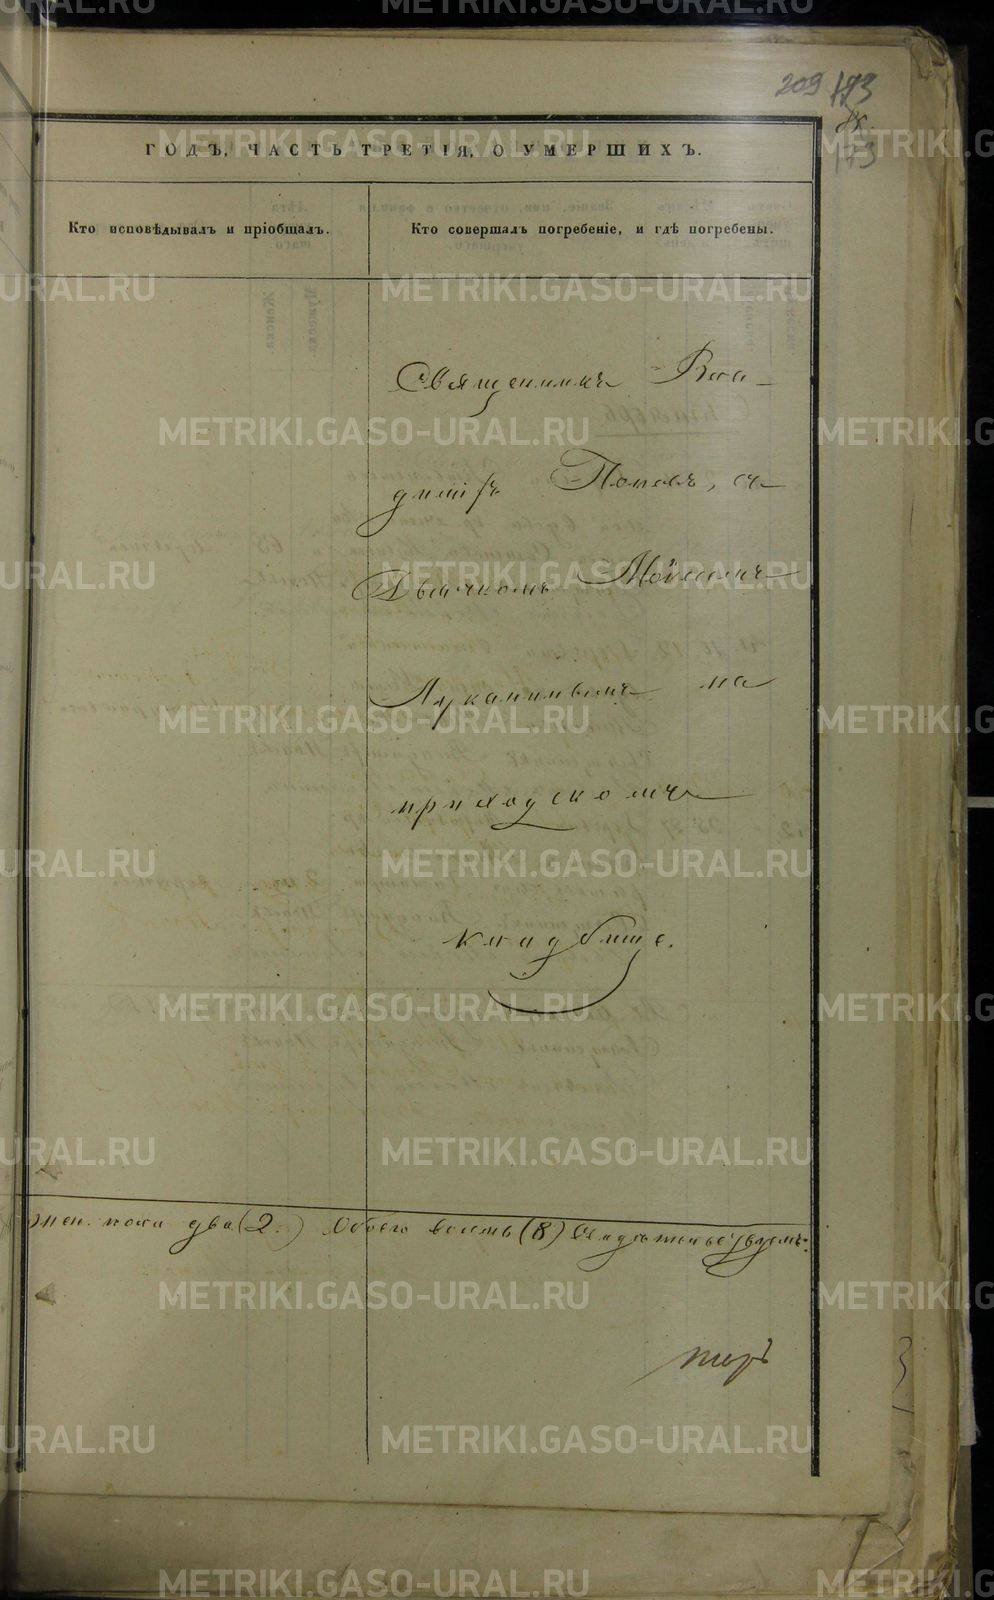 209 173
173
ГОДЪ, ЧАСТЬ ТРЕТІЯ, О УМЕРШИХЪ.
Кто исповѣдывалъ и пріобщалъ.
Кто совершалъ погребеніе, и гдѣ погребены.
Священникъ Вла-
димiръ Поповъ, съ
Дьячкомъ Мойсеемъ
Лукашинымъ на
приходскомъ
кладбище.
жен. пола два (2.) Обоего восемь (8) Свидѣтельствуемъ:
METRIKI.GASO-URAL.RU